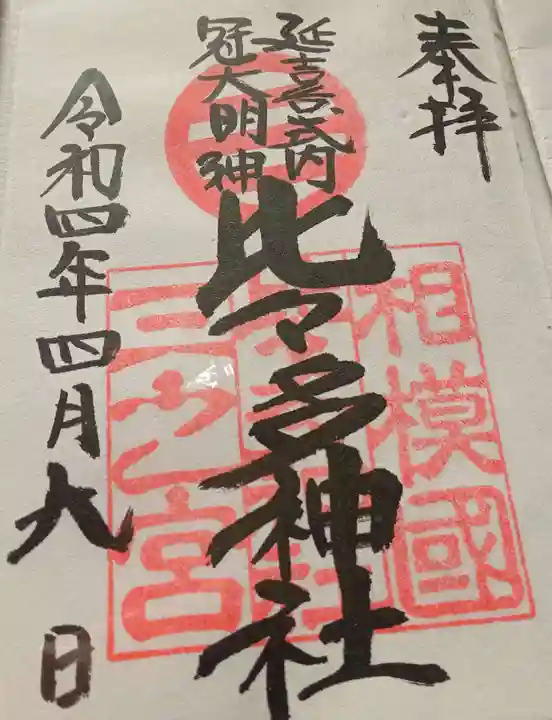 奉拝
延喜式内
冠大明神
比々多神社
令和四年四月六日
相模國
三之宮